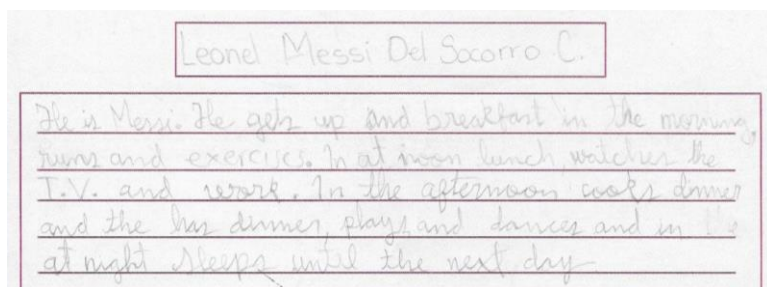 Leonel Messi Del Socorro C.
He is Messi. He gets up and breakfast in the morning,
runs and exercises. In at noon lunch, watches the
T.V. and work. In the afternoon cooks dinner
and the has dinner, plays and dances and in the
at night sleeps until the next day